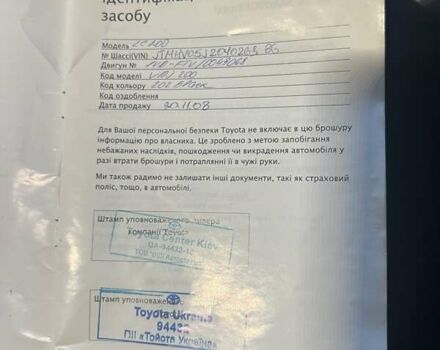 Ідентифікац
засобу
Модель LC 200
№ Шассі(VIN)
Двигун №
Код моделі 200
Код кольору 202 Black
Код оздоблення
Дата продажу 30.11.08
Для Вашої персональної безпеки Toyota не включає в цю брошуру
інформацію про власника. Це зроблено з метою запобігання
небажаних наслідків, пошкодження чи викрадення автомобіля у
разі втрати брошури і потраплянні її в чужі руки.
Ми також радимо не залишати інші документи, такі як страховий
поліс, тощо, в автомобілі.
Штамп уповноваженого дилера
компанії Toyota
Toyota Center Kiev
UA-94432-1C
Штамп уповноваженого
Toyota Ukraine
94432
ПІІ «Тойота Україна»